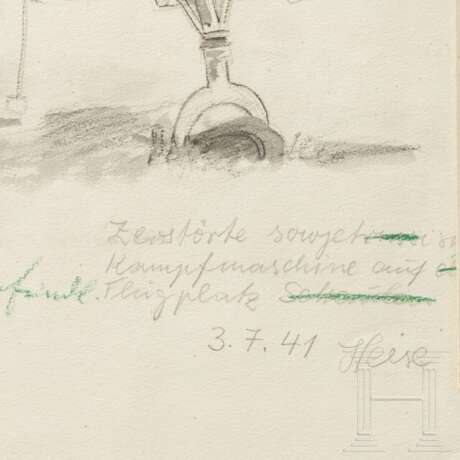 Zerstörte sowjet
Kampfmaschine auf
Flugplatz
3.7.41 Heise
H